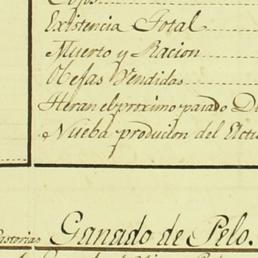 Existencia Total
Muerto y Racion
Obejas Vendidas
Heran el proximo pasado D
Nueba producion del Actu
Ganado de Pelo.